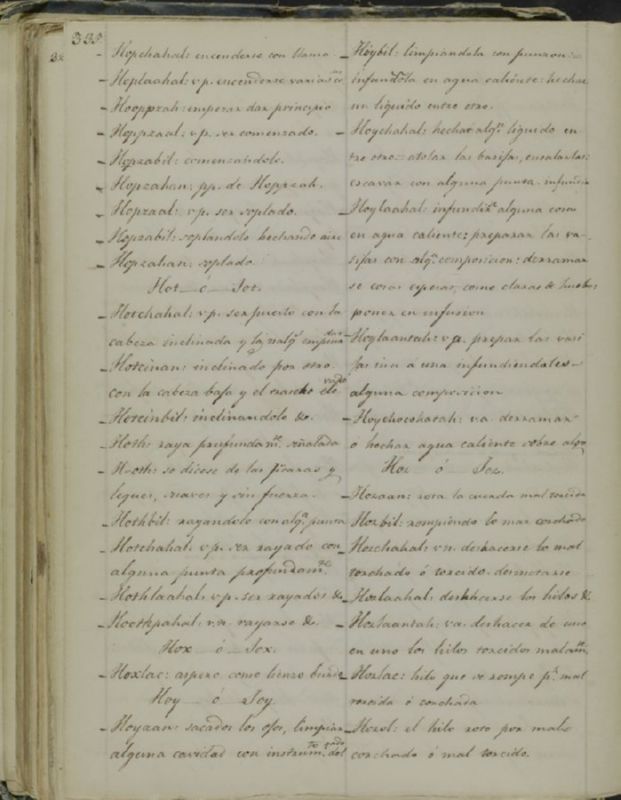 333
Hopchahal: encenderse con llama.
Hoplaahal: v.p. encenderse varias
Hoopprah: empezar dar principio
Hoppraal: v.p. ser comenzado.
Hoprabil: comenzandole.
Hoprahan: pp. de Hopprah.
Hopraal: v.p. ser soplado.
Hopzabil: soplandolo hechando aire
Hopzahan: soplado.
Hot o Jot.
Hotchahal: v.p. ser puerto con la
cabeza inclinada y
Hotcinan: inclinado por otro
con la cabeza baja y el
Hotcinbil: inclinandole &c.
Hoth: raya profundam.te señalada
Hoth: so dicese de las y
legues, suaves y sin fuerza.
Hothbil: rayandolo con alg.a punta
Hotchahal: v.p. ser rayado con
alguna punta profundam.te
Hothlaahal: v.p. ser rayados &c
Hoothpahal: v.n. rayarse &c.
Hox ó Jox.
Hoxlac: aspero como lienzo
Hoy ó Joy
Hoyaan: sacados los ojos, limpiar
alguna cavidad con instrum.to del
Hoybil: limpiandola con punzon:
infundola en agua caliente: hechar
un liquido entre otro.
Hoychahal: hechar alg.n liquido en
tre otro las
escavar con alguna punta.
Hoylaahal: infundir alguna cosa
en agua caliente: preparar las va-
sijas con alg.a composicion: derramar
se cosas espesas, como claras de huebos
poner en infusion
Hoylaantah: v.a. prepar las vasi
jas una á una infundiendoles
alguna composicion
v.a. derramar
o hechar agua caliente sobre algo
Hoz ó Joz.
Hozaan: rota la cuerda mal torcida
Hozbil: rompiendo lo mar corchado
Hozchahal: v.n. deshacerse lo mal
corchado ó torcido.
Hozlaahal: deshacerse los hilos &c
Hozlaantah: va. deshacer de uno
en uno los hilos torcidos malam.te
Hozlac: hilo que se rompe p.r mal
torcida ó corchada
Hozol: el hilo roto por malo
corchado ó mal torcido.